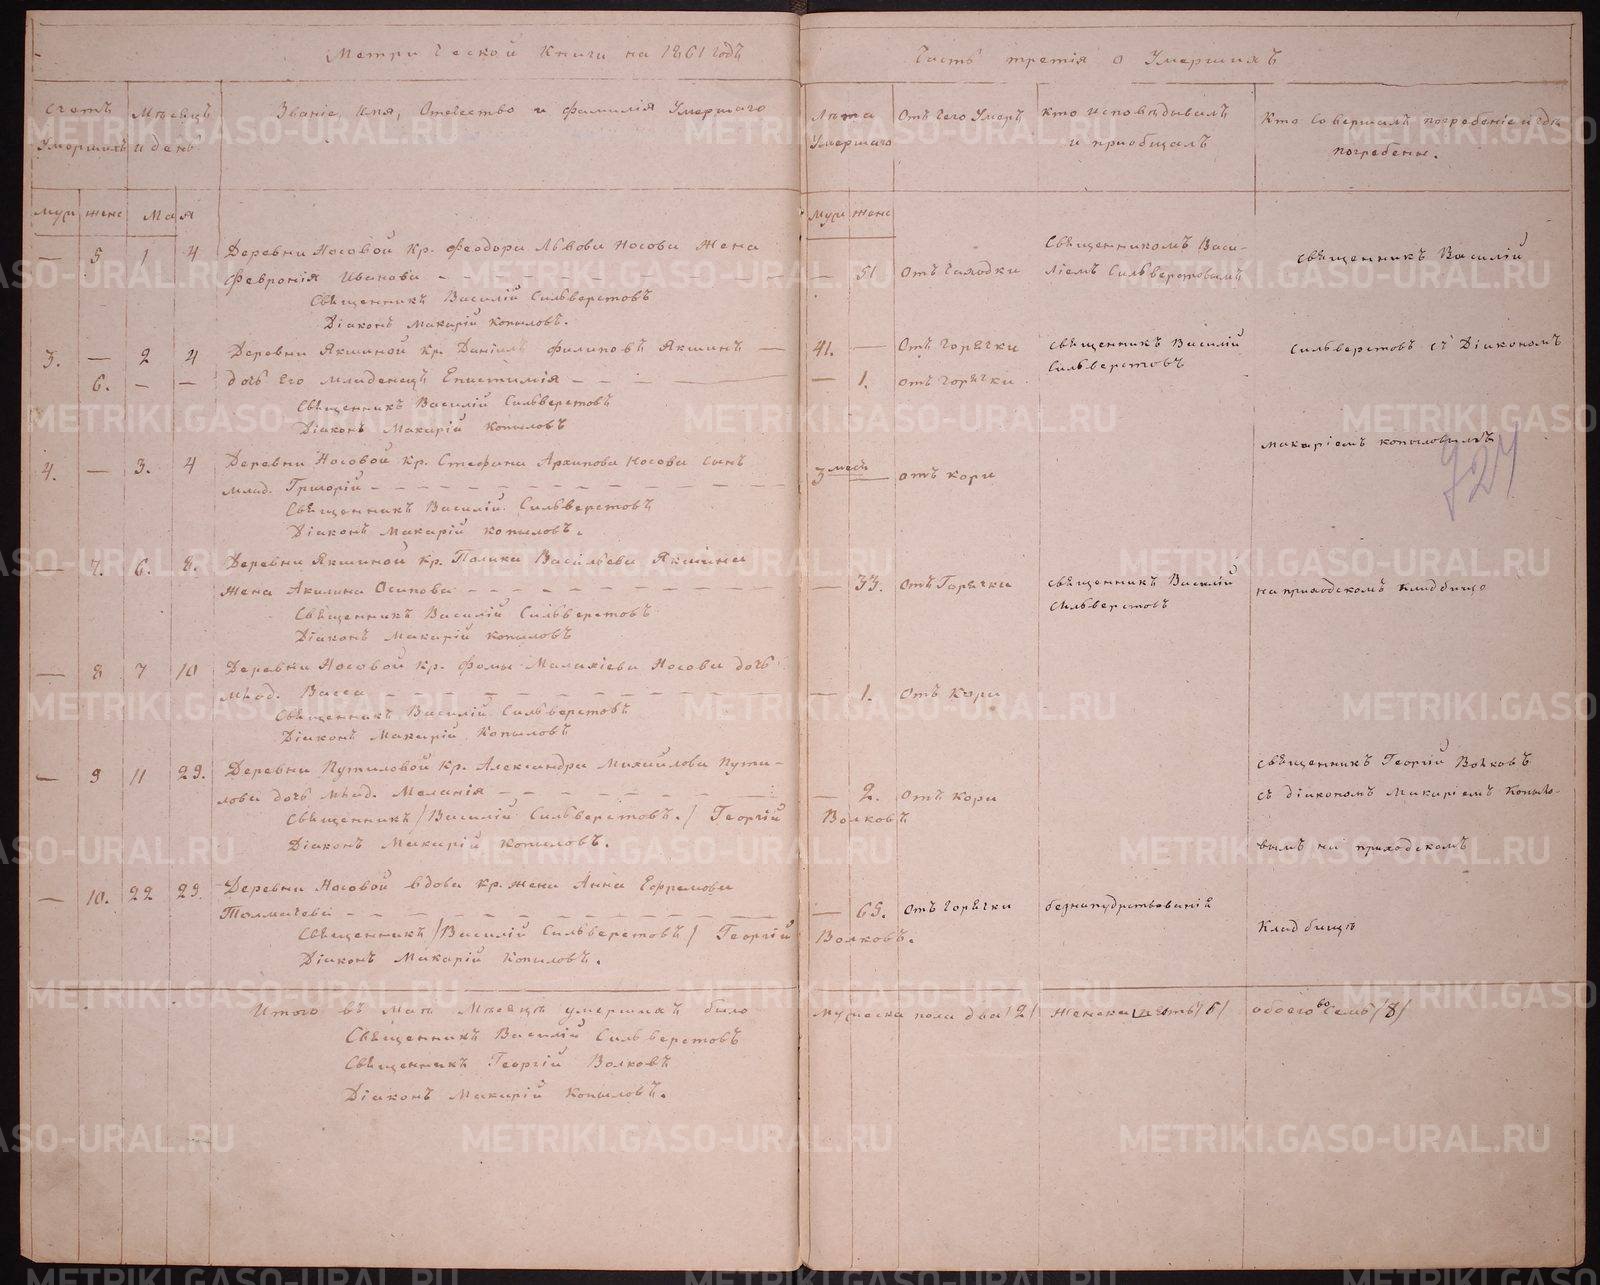 Метрической Книги на 1861 годъ
Часть третія о Умершихъ
Счетъ Умершихъ
Мѣсяцъ и день
Званіе, Имя, Отечество и фамилія Умершаго
Лѣта Умершаго
Отъ чего Умеръ
Кто исповѣдывалъ и приобщалъ
Кто Совершалъ погребеніе и гдѣ погребены.
муж женс Мая
муж женс
— 5 1 4 Деревни Носовой Кр. Феодора Львова Носова Жена
Февронія Иванова — 51 Отъ чаходки
Священникомъ Васи-
ліемъ Сильверстовымъ
Священникъ Василій
Священникъ Василій Сильверстовъ
Діаконъ Макарій Копыловъ.
3. — 2 4 Деревни Якшиной Кр. Даніилъ Филиповъ Якшинъ — 41. — Отъ Горячки
Священникъ Василій
Сильверстовъ
Сильверстовъ съ Діакономъ
6. — — дочь Его младенецъ Епистимія — 1. отъ горячки
Священникъ Василій Сильверстовъ
Діаконъ Макарій Копыловъ
Макаріемъ Копыловымъ
927
4. — 3. 4 Деревни Носовой Кр. Стефана Архипова Носова сынъ
млад. Григорій — 3 мест — отъ кори
Священникъ Василій Сильверстовъ
Діаконъ Макарій Копыловъ.
— 7. 6. 8. Деревни Якшиной Кр. Павла Васильева Якшина
Жена Акилина Осипова — 33. отъ Горячки
Священникъ Василій
Сильверстовъ
на приходскомъ Кладбище
Священникъ Василій Сильверстовъ
Діаконъ Макарій Копыловъ
— 8 7 10 Деревни Носовой Кр. Фомы Малахіева Носова дочь
млад. Васса — 1. Отъ Кори
Священникъ Василій Сильверстовъ
Діаконъ Макарій Копыловъ
— 9 11 29. Деревни Путиловой Кр. Александра Михайлова Пути-
лова дочь млад. Меланія — 2. Отъ Кори
Священникъ Георгій Волковъ
съ діакономъ Макаріемъ Копыло-
Священникъ /Василій Сильверстовъ./ Георгій Волковъ
Діаконъ Макарій Копыловъ.
вымъ на приходскомъ
— 10. 22 29. Деревни Носовой вдова кр. жена Анна Ефремова
Толмачева — 65. отъ Горячки
безнапутствованія
Кладбищѣ
Священникъ /Василій Сильверстовъ/ Георгій Волковъ.
Діаконъ Макарій Копыловъ.
Итого въ Маѣ Мѣсяцѣ умершихъ было мужеска пола два /2/ Женска шесть /6/ обоего восемь /8/
Священникъ Василій Сильверстовъ
Священникъ Георгій Волковъ
Діаконъ Макарій Копыловъ.
METRIKI.GASO-URAL.RU